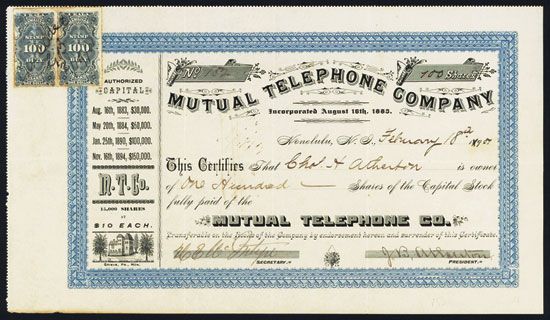 STAMP
100
STAMP
100
No 152
100 Shares
MUTUAL TELEPHONE COMPANY
Incorporated August 16th, 1883.
AUTHORIZED
CAPITAL
Aug. 16th, 1883, $30,000.
May 20th, 1884, $50,000.
Jan. 25th, 1890, $100,000.
Nov. 16th, 1894, $150,000.
M.T.Co.
15,000 SHARES
AT
$10 EACH.
Honolulu, February 18th
This Certifies That Chas H Atherton is owner
of One Hundred Shares of the Capital Stock
fully paid of the
MUTUAL TELEPHONE CO.
Transferable on the Books of the Company by endorsement hereon and surrender of this Certificate.
SECRETARY.
J.B. Atherton
PRESIDENT.